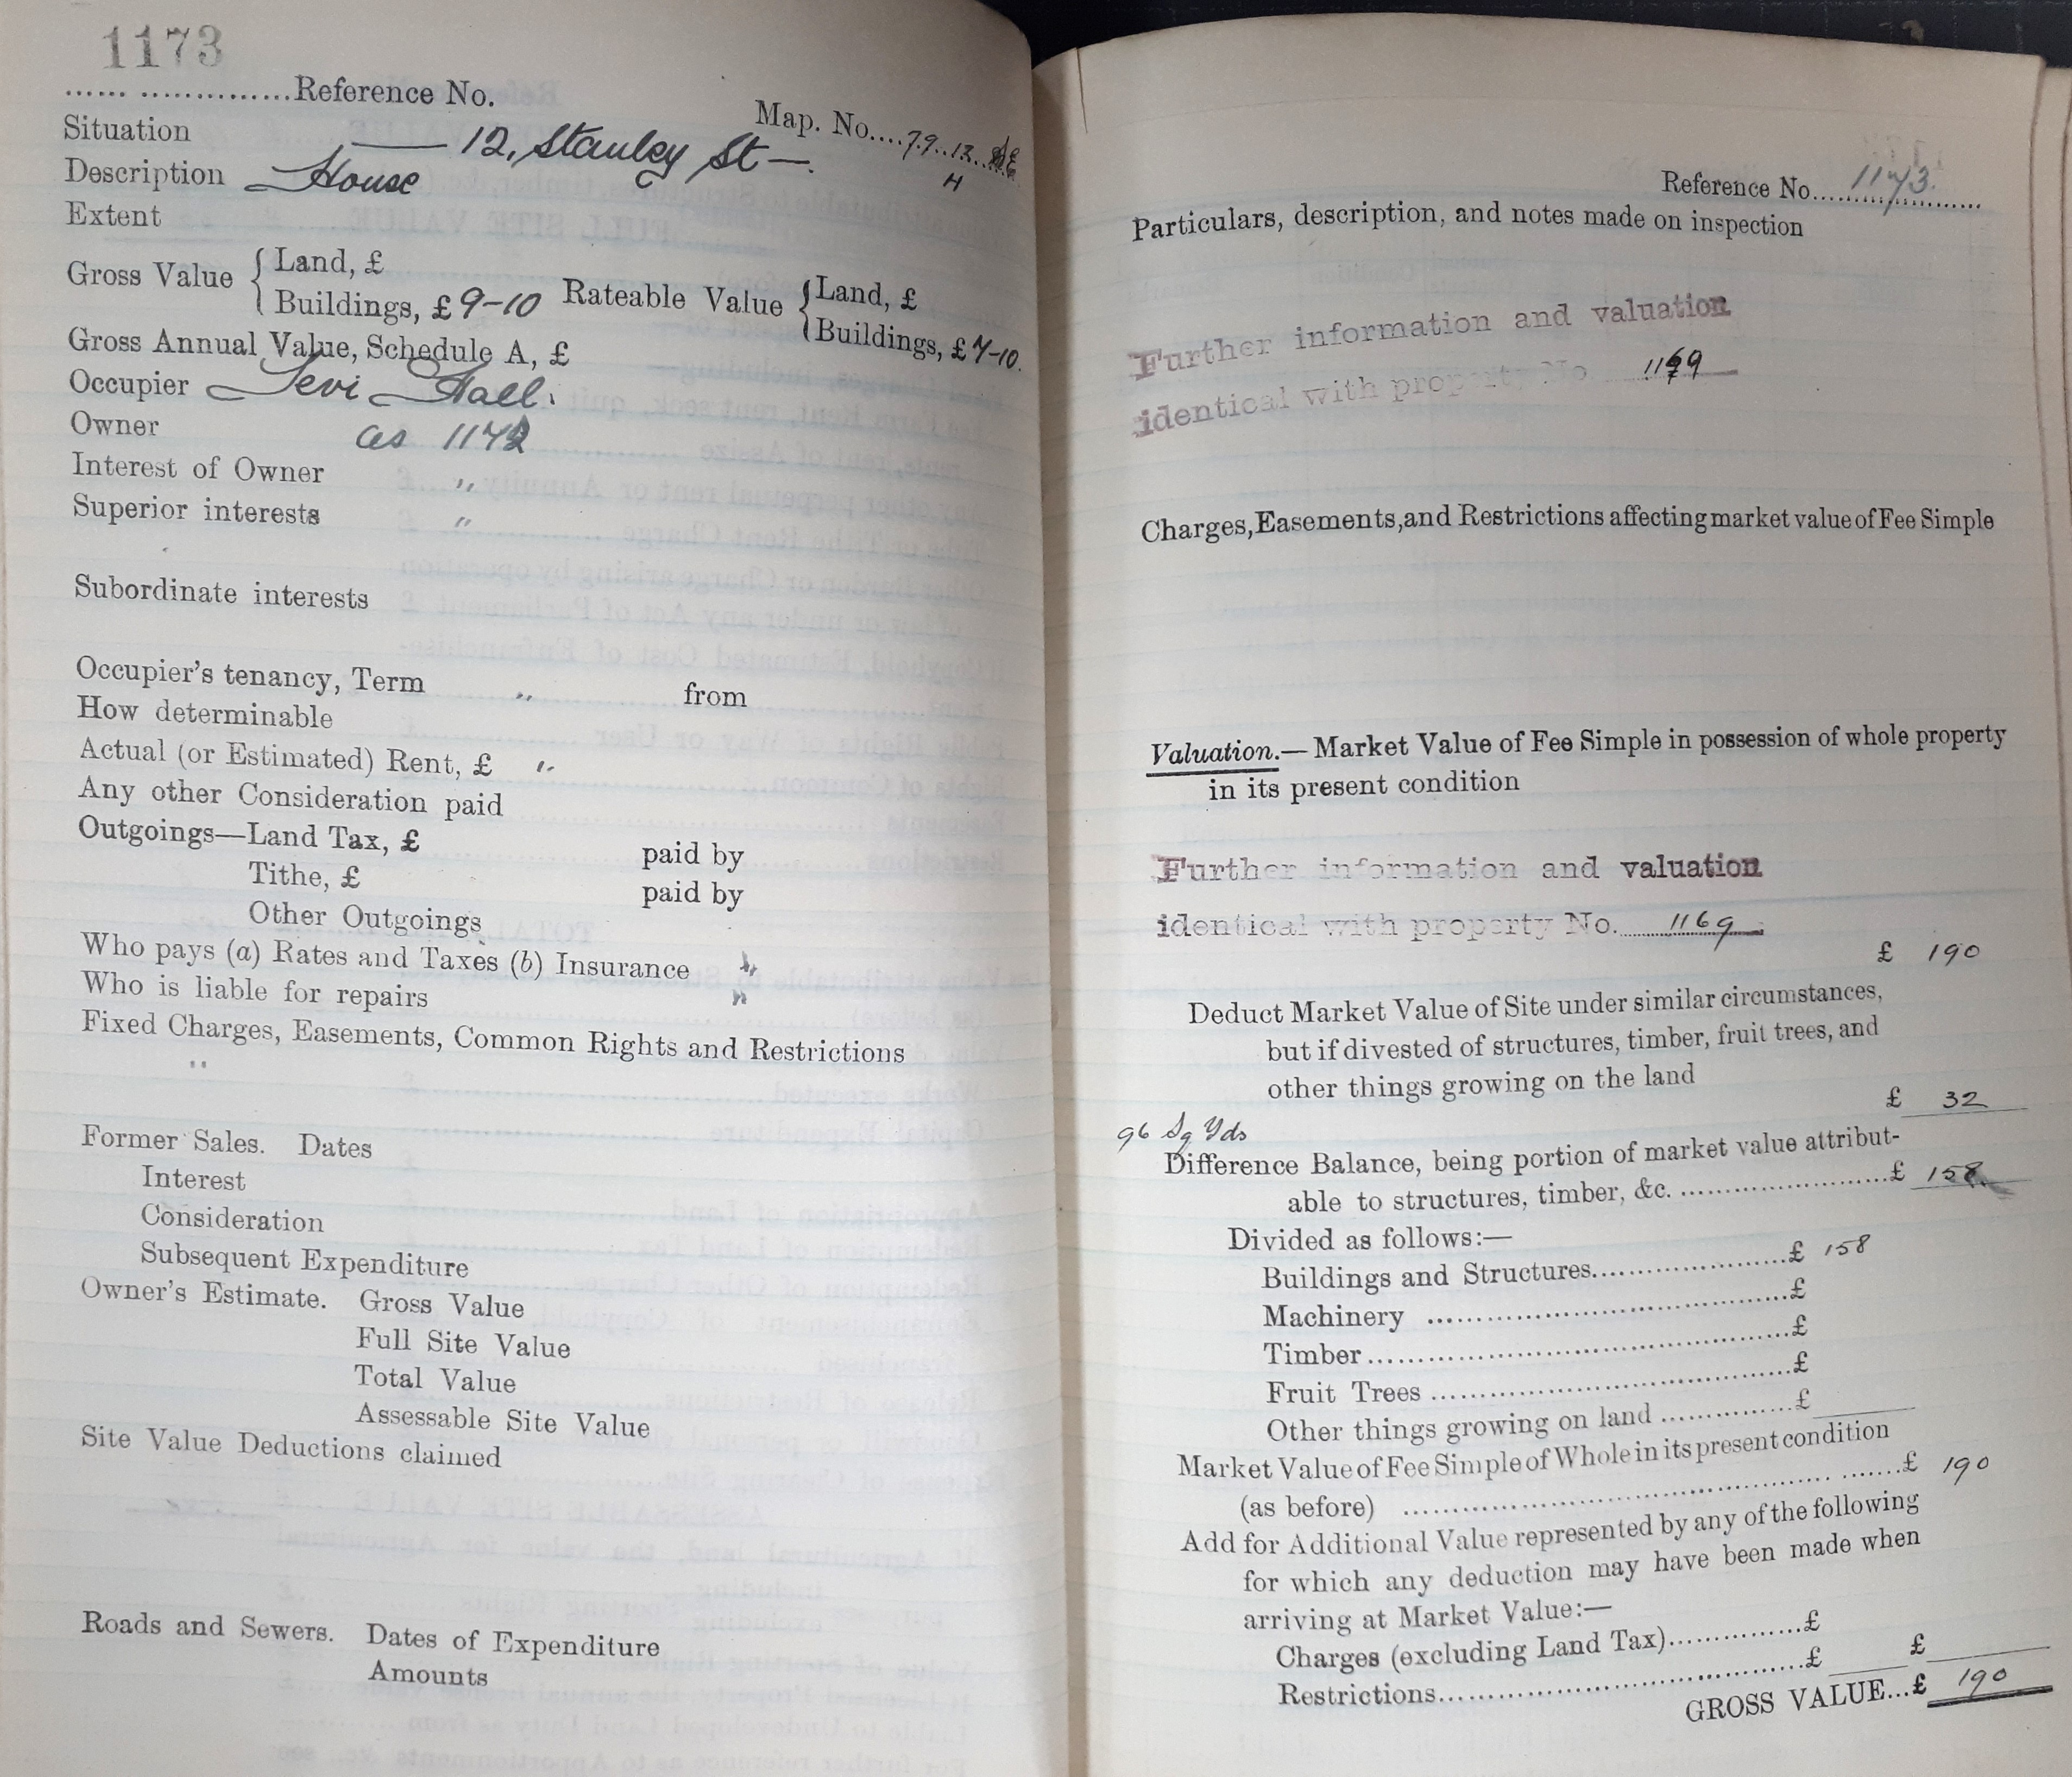 1173
...... ...............Reference No.
Map. No....79..13...
H
Situation — 12, Stanley St —.
Description House
Extent
Gross Value { Land, £
Buildings, £ 9-10 Rateable Value { Land, £
Buildings, £ 7-10.
Gross Annual Value, Schedule A, £
Occupier Levi Hall.
Owner as 1172
Interest of Owner "
Superior interests "
Subordinate interests
Occupier's tenancy, Term " from
How determinable
Actual (or Estimated) Rent, £ "
Any other Consideration paid
Outgoings—Land Tax, £ paid by
Tithe, £ paid by
Other Outgoings
Who pays (a) Rates and Taxes (b) Insurance "
Who is liable for repairs "
Fixed Charges, Easements, Common Rights and Restrictions
"
Former Sales. Dates
Interest
Consideration
Subsequent Expenditure
Owner's Estimate. Gross Value
Full Site Value
Total Value
Assessable Site Value
Site Value Deductions claimed
Roads and Sewers. Dates of Expenditure
Amounts
Reference No. 1173.
Particulars, description, and notes made on inspection
Further information and valuation
identical with property No 1169
Charges, Easements, and Restrictions affecting market value of Fee Simple
Valuation.— Market Value of Fee Simple in possession of whole property
in its present condition
Further information and valuation
identical with property No. 1169
£ 190
Deduct Market Value of Site under similar circumstances,
but if divested of structures, timber, fruit trees, and
other things growing on the land
£ 32
96 Sq Yds
Difference Balance, being portion of market value attribut-
able to structures, timber, &c. ........................£ 158
Divided as follows:—
Buildings and Structures........................£ 158
Machinery ........................£
Timber........................£
Fruit Trees ........................£
Other things growing on land ...............£
Market Value of Fee Simple of Whole in its present condition
(as before) ........................£ 190
Add for Additional Value represented by any of the following
for which any deduction may have been made when
arriving at Market Value:—
Charges (excluding Land Tax)...............£
Restrictions........................£ £
GROSS VALUE...£ 190